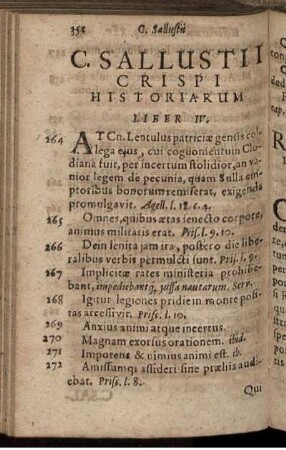 352 C. Sallustii
C. SALLUSTII
CRISPI
HISTORIARUM
LIBER IV.
264 AT Cn. Lentulus patriciæ gentis col-
lega ejus, cui cognomentum Clo-
diana fuit, per incertum stolidior, an va-
nior legem de pecunia, quam Sulla em-
ptoribus bonorum remiserat, exigenda
promulgavit. Agell. l. 18. c. 4.
265 Omnes, quibus ætas senecto corpore,
animus militaris erat. Pris. l. 9. 10.
266 Dein lenita jam ira, postero die libe-
ralibus verbis permulcti sunt. Pris. l. 9.
267 Implicitæ rates ministeria prohibe-
bant, impediebantq; jussa nautarum. Serv.
268 Igitur legiones pridie in monte posi-
tas accessivit. Pris. l. 10.
269 Anxius animi atque incertus.
270 Magnam exorsus orationem. ibid.
271 Impotens & nimius animi est. ib.
272 Amissum qui assideri sine præliis audi-
ebat. Prisc. l. 8.
Qui
C. SAL-